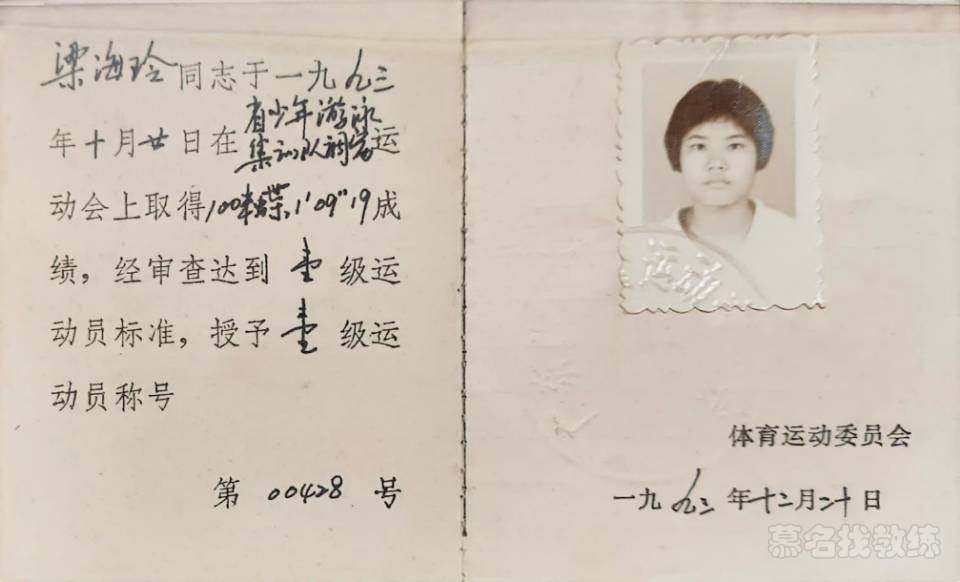 梁海玲同志于一九九三
年十月廿日在省少年游泳
集训队调赛运
动会上取得100米蝶,1'09"19成
绩，经审查达到壹级运
动员标准，授予壹级运
动员称号
第 00428 号
运动
体育运动委员会
一九九三年十二月二十日
慕名找教练